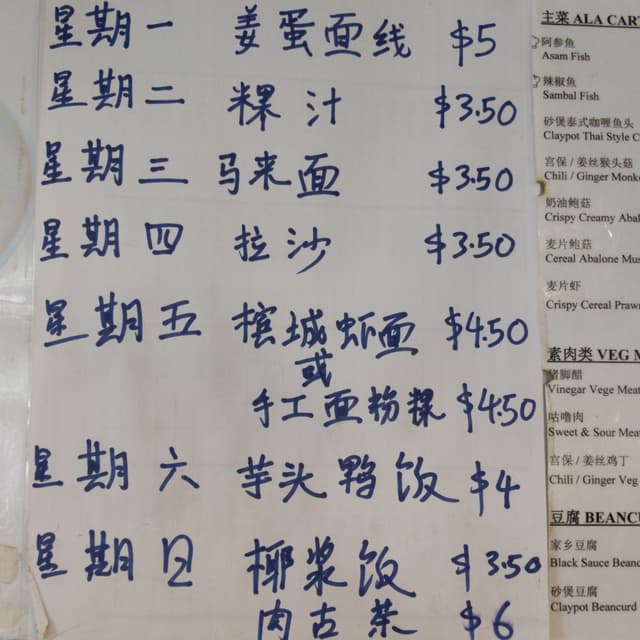 星期一 姜蛋面线 $5
星期二 粿汁 $3.50
星期三 马来面 $3.50
星期四 拉沙 $3.50
星期五 槟城虾面 $4.50
或
手工面粉粿 $4.50
星期六 芋头鸭饭 $4
星期日 椰浆饭 $3.50
肉古茶 $6
主菜 ALA CAR
阿参鱼
Asam Fish
辣椒鱼
Sambal Fish
砂煲泰式咖喱鱼头
Claypot Thai Style C
宫保 / 姜丝猴头菇
Chili / Ginger Monk
奶油鲍菇
Crispy Creamy Abal
麦片鲍菇
Cereal Abalone Mus
麦片虾
Crispy Cereal Prawn
素肉类 VEG M
猪脚醋
Vinegar Vege Meat
咕噜肉
Sweet & Sour Meat
宫保 / 姜丝鸡丁
Chili / Ginger Veg
豆腐 BEANCU
家乡豆腐
Black Sauce Beanc
砂煲豆腐
Claypot Beancurd